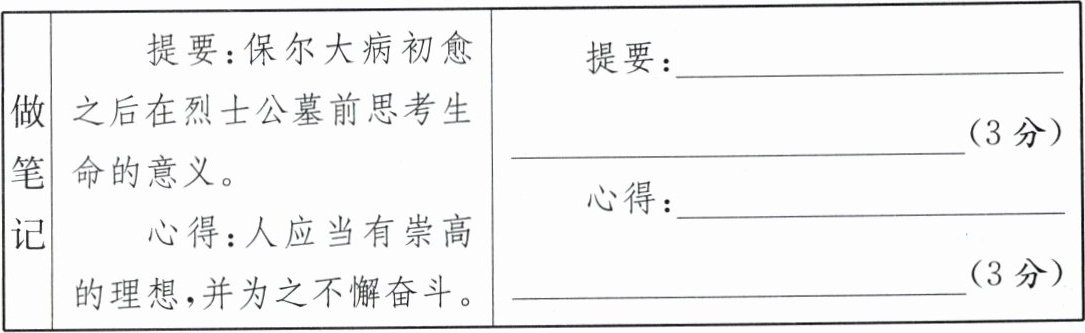 做笔记
提要：保尔大病初愈
之后在烈士公墓前思考生
命的意义。
心得：人应当有崇高
的理想，并为之不懈奋斗。
提要：
（3分）
心得：
（3分）